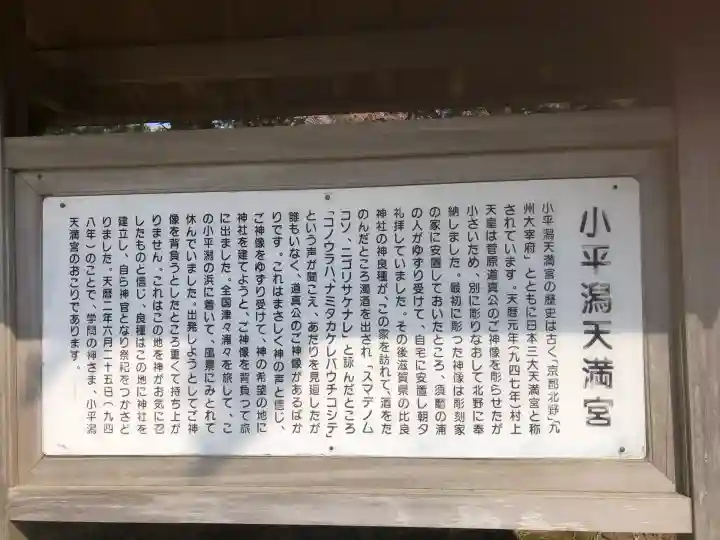 小平潟天満宮
小平潟天満宮の歴史は古く「京都北野」「九
州大宰府」とともに日本三大天満宮と称
されています。天暦元年（九四七年）村上
天皇は菅原道真公のご神像を彫らせたが
小さいため、別に彫りなおして北野に奉
納しました。最初に彫った神像は彫刻家
の家に安置しておいたところ、須磨の浦
の人がゆずり受けて、自宅に安置し朝夕
礼拝していました。その後滋賀県の比良
神社の神良種が、この家を訪れて、酒をた
のんだところ濁酒を出され「スマデノム
コソ、ニゴリサケナレ」と詠んだところ
「コノウラハ、ナミタカケレバウチコシテ」
という声が聞こえ、あたりを見廻したが
誰もいなく、道真公のご神像があるばか
りです。これはまさしく神の声と信じ、
ご神像をゆずり受けて、神の希望の地に
神社を建てようと、ご神像を背負って旅
に出ました。全国津々浦々を旅して、こ
の小平潟の浜に着いて、風景にみとれて
休んでいました。出発しようとしてご神
像を背負うとしたところ重くて持ち上が
りません。これはこの地を神がお気に召
したものと信じ、良種はこの地に神社を
建立し、自ら神官となり祭祀をつかさど
りました。天暦二年六月二十五日（九四
八年）のことで、学問の神さま、小平潟
天満宮のおこりであります。